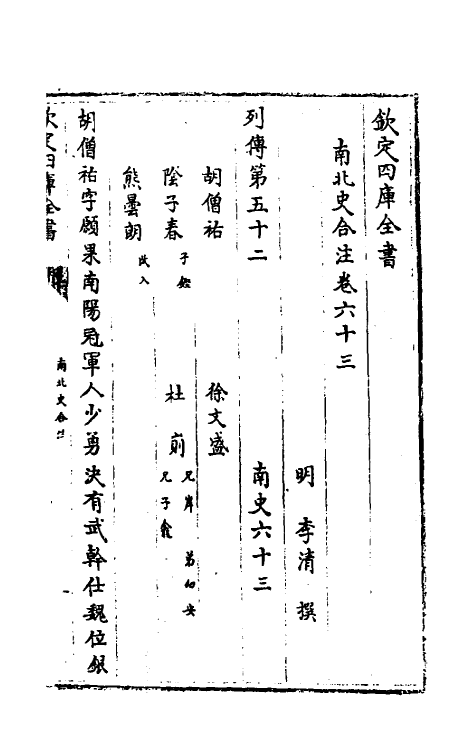 欽定四庫全書
南北史合注卷六十三
明 李清 撰
列傳第五十二 南史六十三
胡僧祐 徐文盛
陰子春 子鏗 杜崱 兄岸 弟幼安 兄子龕
熊曇朗 改入
胡僧祐字願果南陽冠軍人少勇決有武幹仕魏位銀
欽定四庫全書
南北史合注